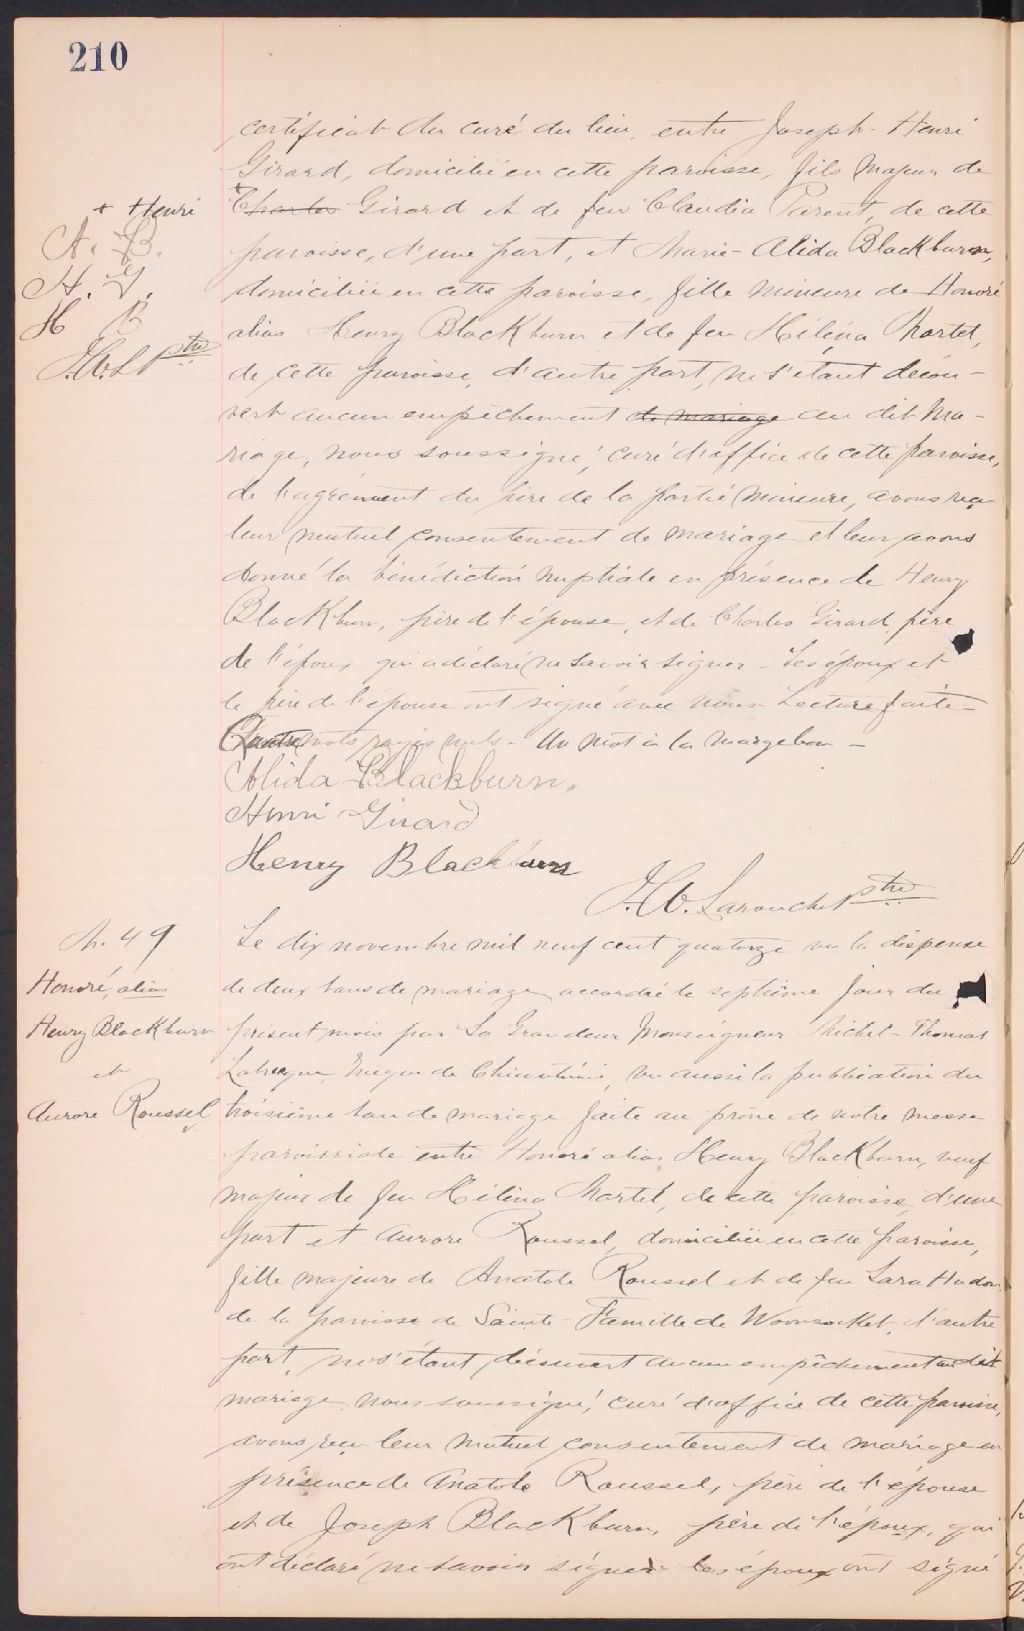 210
certificat du curé du lieu, entre Joseph-Henri
Girard, domicilié en cette paroisse, fils majeur de
+ Henri
+ Charles Girard et de feu Claudia Parent, de cette
A. B.
paroisse, d'une part, et Marie-Alida Blackburn,
H. G.
domiciliée en cette paroisse, fille mineure de Honoré
H B
alias Henry Blackburn et de feu Héléna Martel,
Ptre
de cette paroisse, d'autre part, ne s'étant décou-
vert aucun empêchement de mariage au dit ma-
riage, nous soussigné, curé d'office de cette paroisse,
de l'agrément du père de la partie mineure, avons reçu
leur mutuel consentement de mariage et leur avons
donné la bénédiction nuptiale en présence de Henry
Blackburn, père de l'épouse, et de Charles Girard, père
de l'époux qui a déclaré ne savoir signer - Les époux et
le père de l'épouse ont signé avec nous. Lecture faite -
mots rayés nuls - Un mot à la marge bon -
Alida Blackburn.
Henri Girard
Henry Blackburn
Larouche Ptre
M. 49
Honoré, alias
Henry Blackburn
et
Aurore Roussel
Le dix novembre mil neuf cent quatorze vu la dispense
de deux bans de mariage accordée le septième jour du
présent mois par Sa Grandeur Monseigneur Michel-Thomas
Labrecque, Evêque de Chicoutimi, vu aussi la publication du
troisième ban de mariage faite au prône de notre messe
paroissiale entre Honoré alias Henry Blackburn, veuf
majeur de feu Héléna Martel, de cette paroisse, d'une
part et Aurore Roussel, domiciliée en cette paroisse,
fille majeure de Anatole Roussel et de feu Sara Hudon
de la paroisse de Sainte-Famille de Woonsocket, d'autre
part, ne s'étant découvert aucun empêchement au dit
mariage, nous soussigné, curé d'office de cette paroisse,
avons reçu leur mutuel consentement de mariage en
présence de Anatole Roussel, père de l'épouse
et de Joseph Blackburn, père de l'époux, qui
ont déclaré ne savoir signer - les époux ont signé